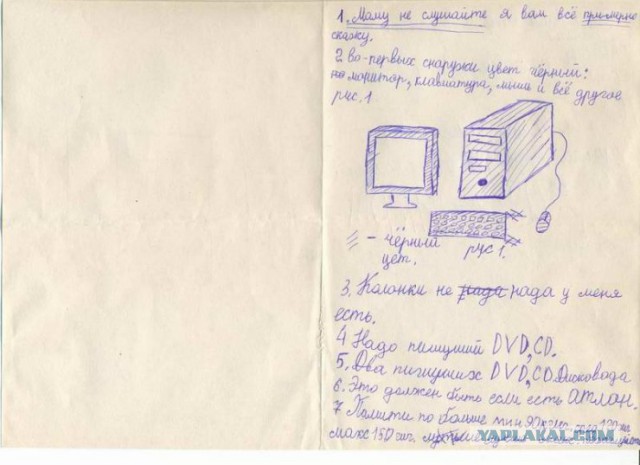 1. Маму не слушайте я вам всё примерно
скажу.
2 во-первых снаружи цвет чёрный:
монитор, клавиатура, мышь и всё другое
рус. 1
- чёрный
цет.
рус 1.
3. Колонки не нада у меня
есть.
4 Надо пишущий DVD, CD.
5. Два пишущих DVD, CD. Дисковода
6. Это должен быть если есть атлон.
7 Помяти по больше мин 90
макс 150 гиг.
YAPLAKAL.COM